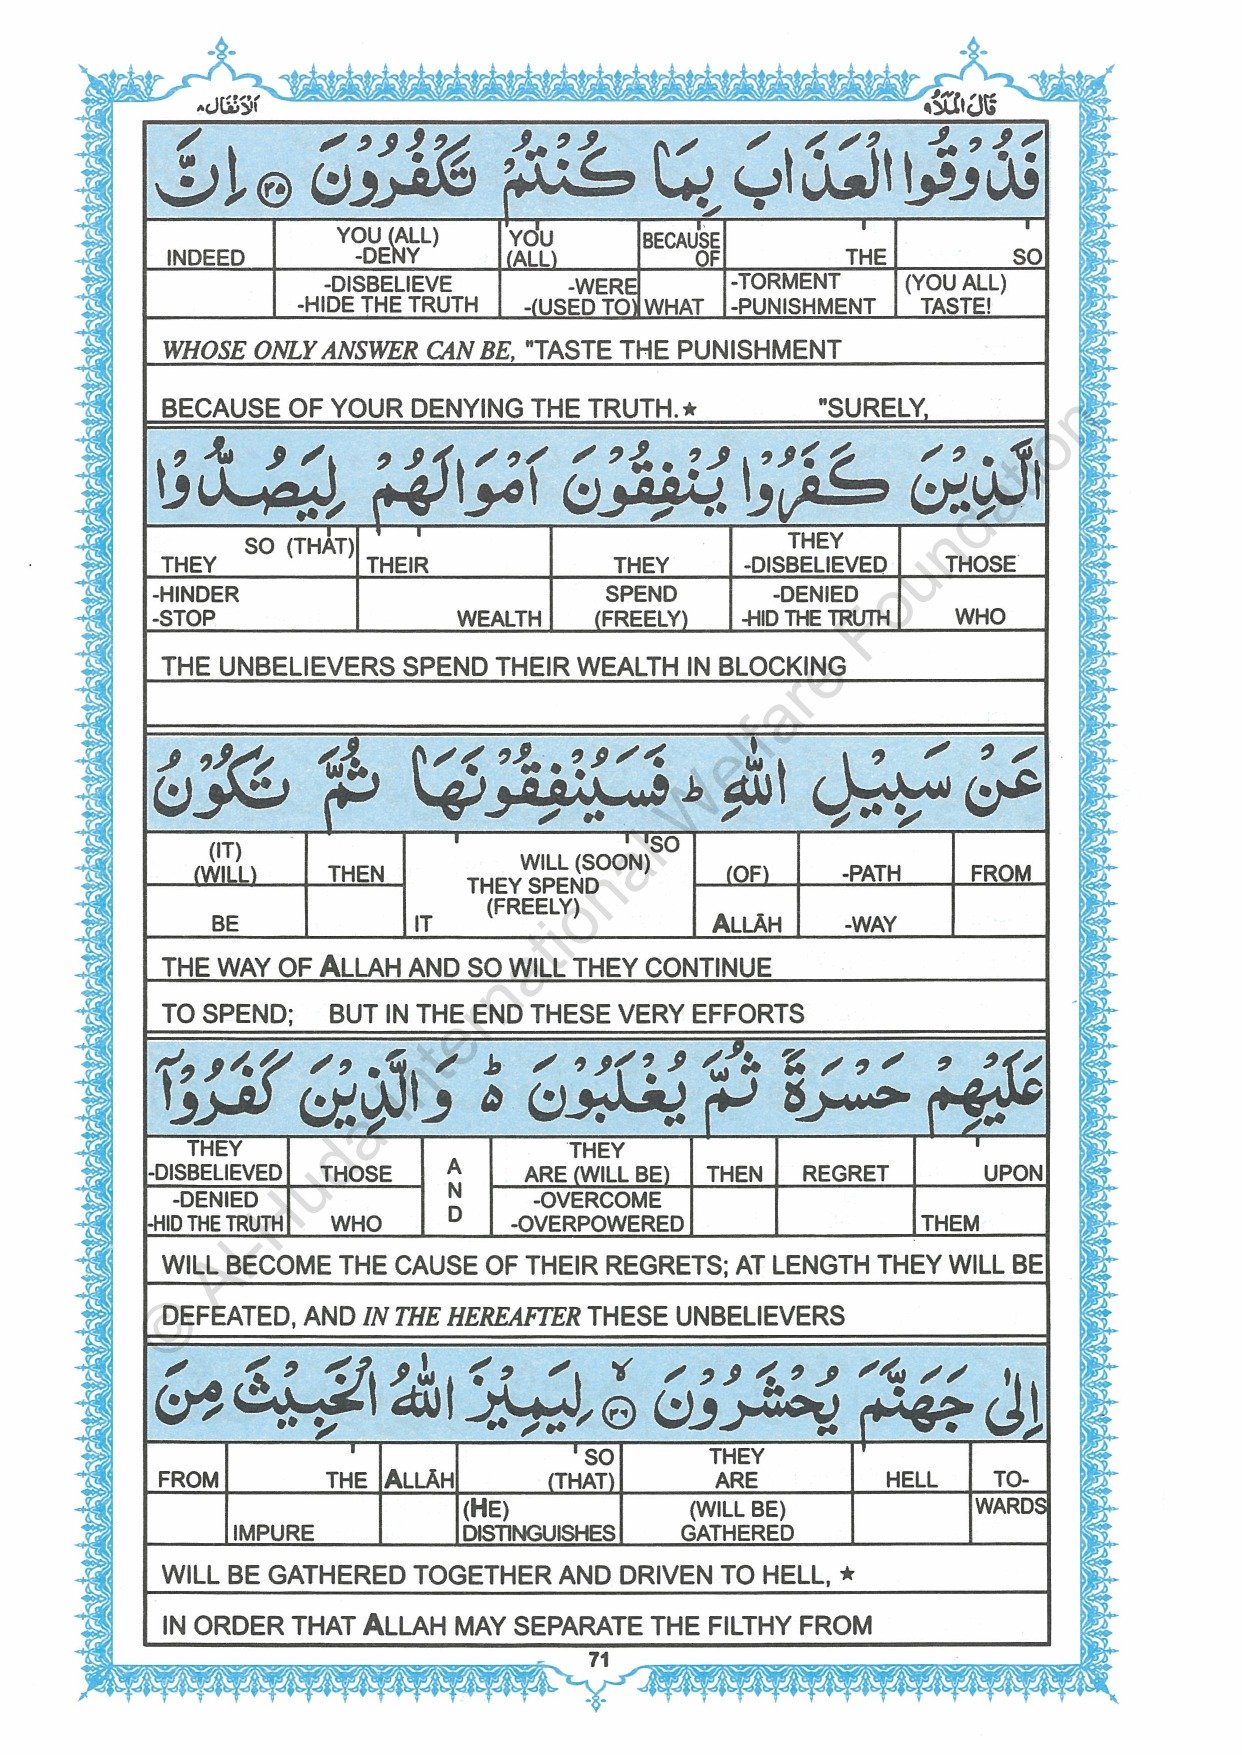 قَالَ الْمَلَاُ ٩
اَلْاَنْفَال ٨
فَذُوْقُوا الْعَذَابَ بِمَا كُنْتُمْ تَكْفُرُوْنَ ۝٣٥ اِنَّ
INDEED YOU (ALL) -DENY YOU (ALL) BECAUSE OF THE SO
-DISBELIEVE -HIDE THE TRUTH -WERE -(USED TO) WHAT -TORMENT -PUNISHMENT (YOU ALL) TASTE!
WHOSE ONLY ANSWER CAN BE, "TASTE THE PUNISHMENT
BECAUSE OF YOUR DENYING THE TRUTH.★ "SURELY,
الَّذِيْنَ كَفَرُوْا يُنْفِقُوْنَ اَمْوَالَهُمْ لِيَصُدُّوْا
THEY SO (THAT) THEIR THEY THEY -DISBELIEVED THOSE
-HINDER -STOP WEALTH SPEND (FREELY) -DENIED -HID THE TRUTH WHO
THE UNBELIEVERS SPEND THEIR WEALTH IN BLOCKING
عَنْ سَبِيْلِ اللّٰهِ ؕ فَسَيُنْفِقُوْنَهَا ثُمَّ تَكُوْنُ
(IT) (WILL) THEN SO WILL (SOON) THEY SPEND (FREELY) IT (OF) -PATH FROM
BE ALLĀH -WAY
THE WAY OF ALLAH AND SO WILL THEY CONTINUE
TO SPEND; BUT IN THE END THESE VERY EFFORTS
عَلَيْهِمْ حَسْرَةً ثُمَّ يُغْلَبُوْنَ ؕ۬ وَالَّذِيْنَ كَفَرُوْۤا
THEY -DISBELIEVED THOSE AND THEY ARE (WILL BE) THEN REGRET UPON
-DENIED -HID THE TRUTH WHO -OVERCOME -OVERPOWERED THEM
WILL BECOME THE CAUSE OF THEIR REGRETS; AT LENGTH THEY WILL BE
DEFEATED, AND IN THE HEREAFTER THESE UNBELIEVERS
اِلٰى جَهَنَّمَ يُحْشَرُوْنَ ۝٣٦ۙ لِيَمِيْزَ اللّٰهُ الْخَبِيْثَ مِنَ
FROM THE ALLĀH SO (THAT) THEY ARE HELL TO-
IMPURE (HE) DISTINGUISHES (WILL BE) GATHERED WARDS
WILL BE GATHERED TOGETHER AND DRIVEN TO HELL, ★
IN ORDER THAT ALLAH MAY SEPARATE THE FILTHY FROM
71
© Al-Huda International Welfare Foundation